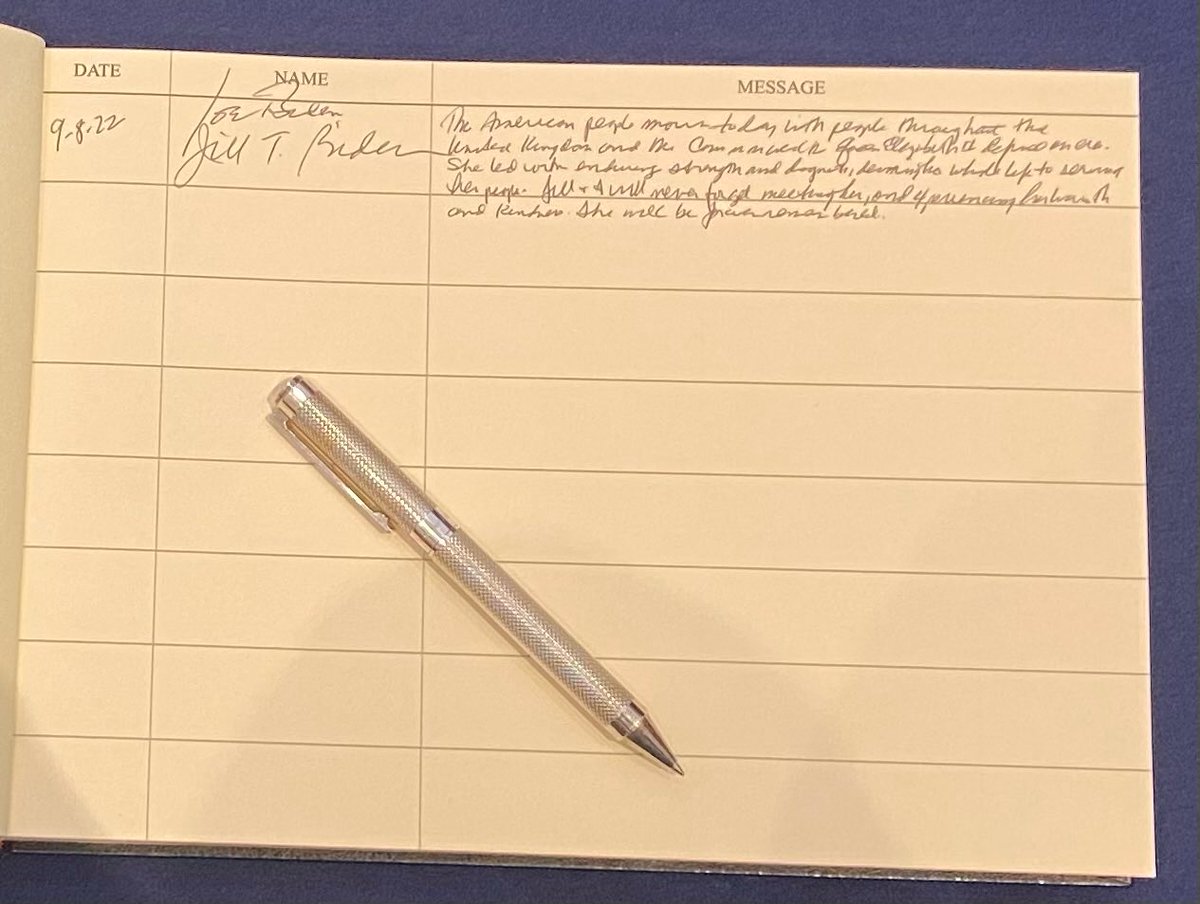 DATE NAME MESSAGE
9-8-22
Joe Biden
Jill T. Biden
The American people mourn today with people throughout the
United Kingdom and the Commonwealth Queen Elizabeth II an era.
She led with enduring strength and dignity, whole life to serving
her people. Jill + I will never forget meeting her, and experiencing her warmth
and kindness. She will be forever remembered.